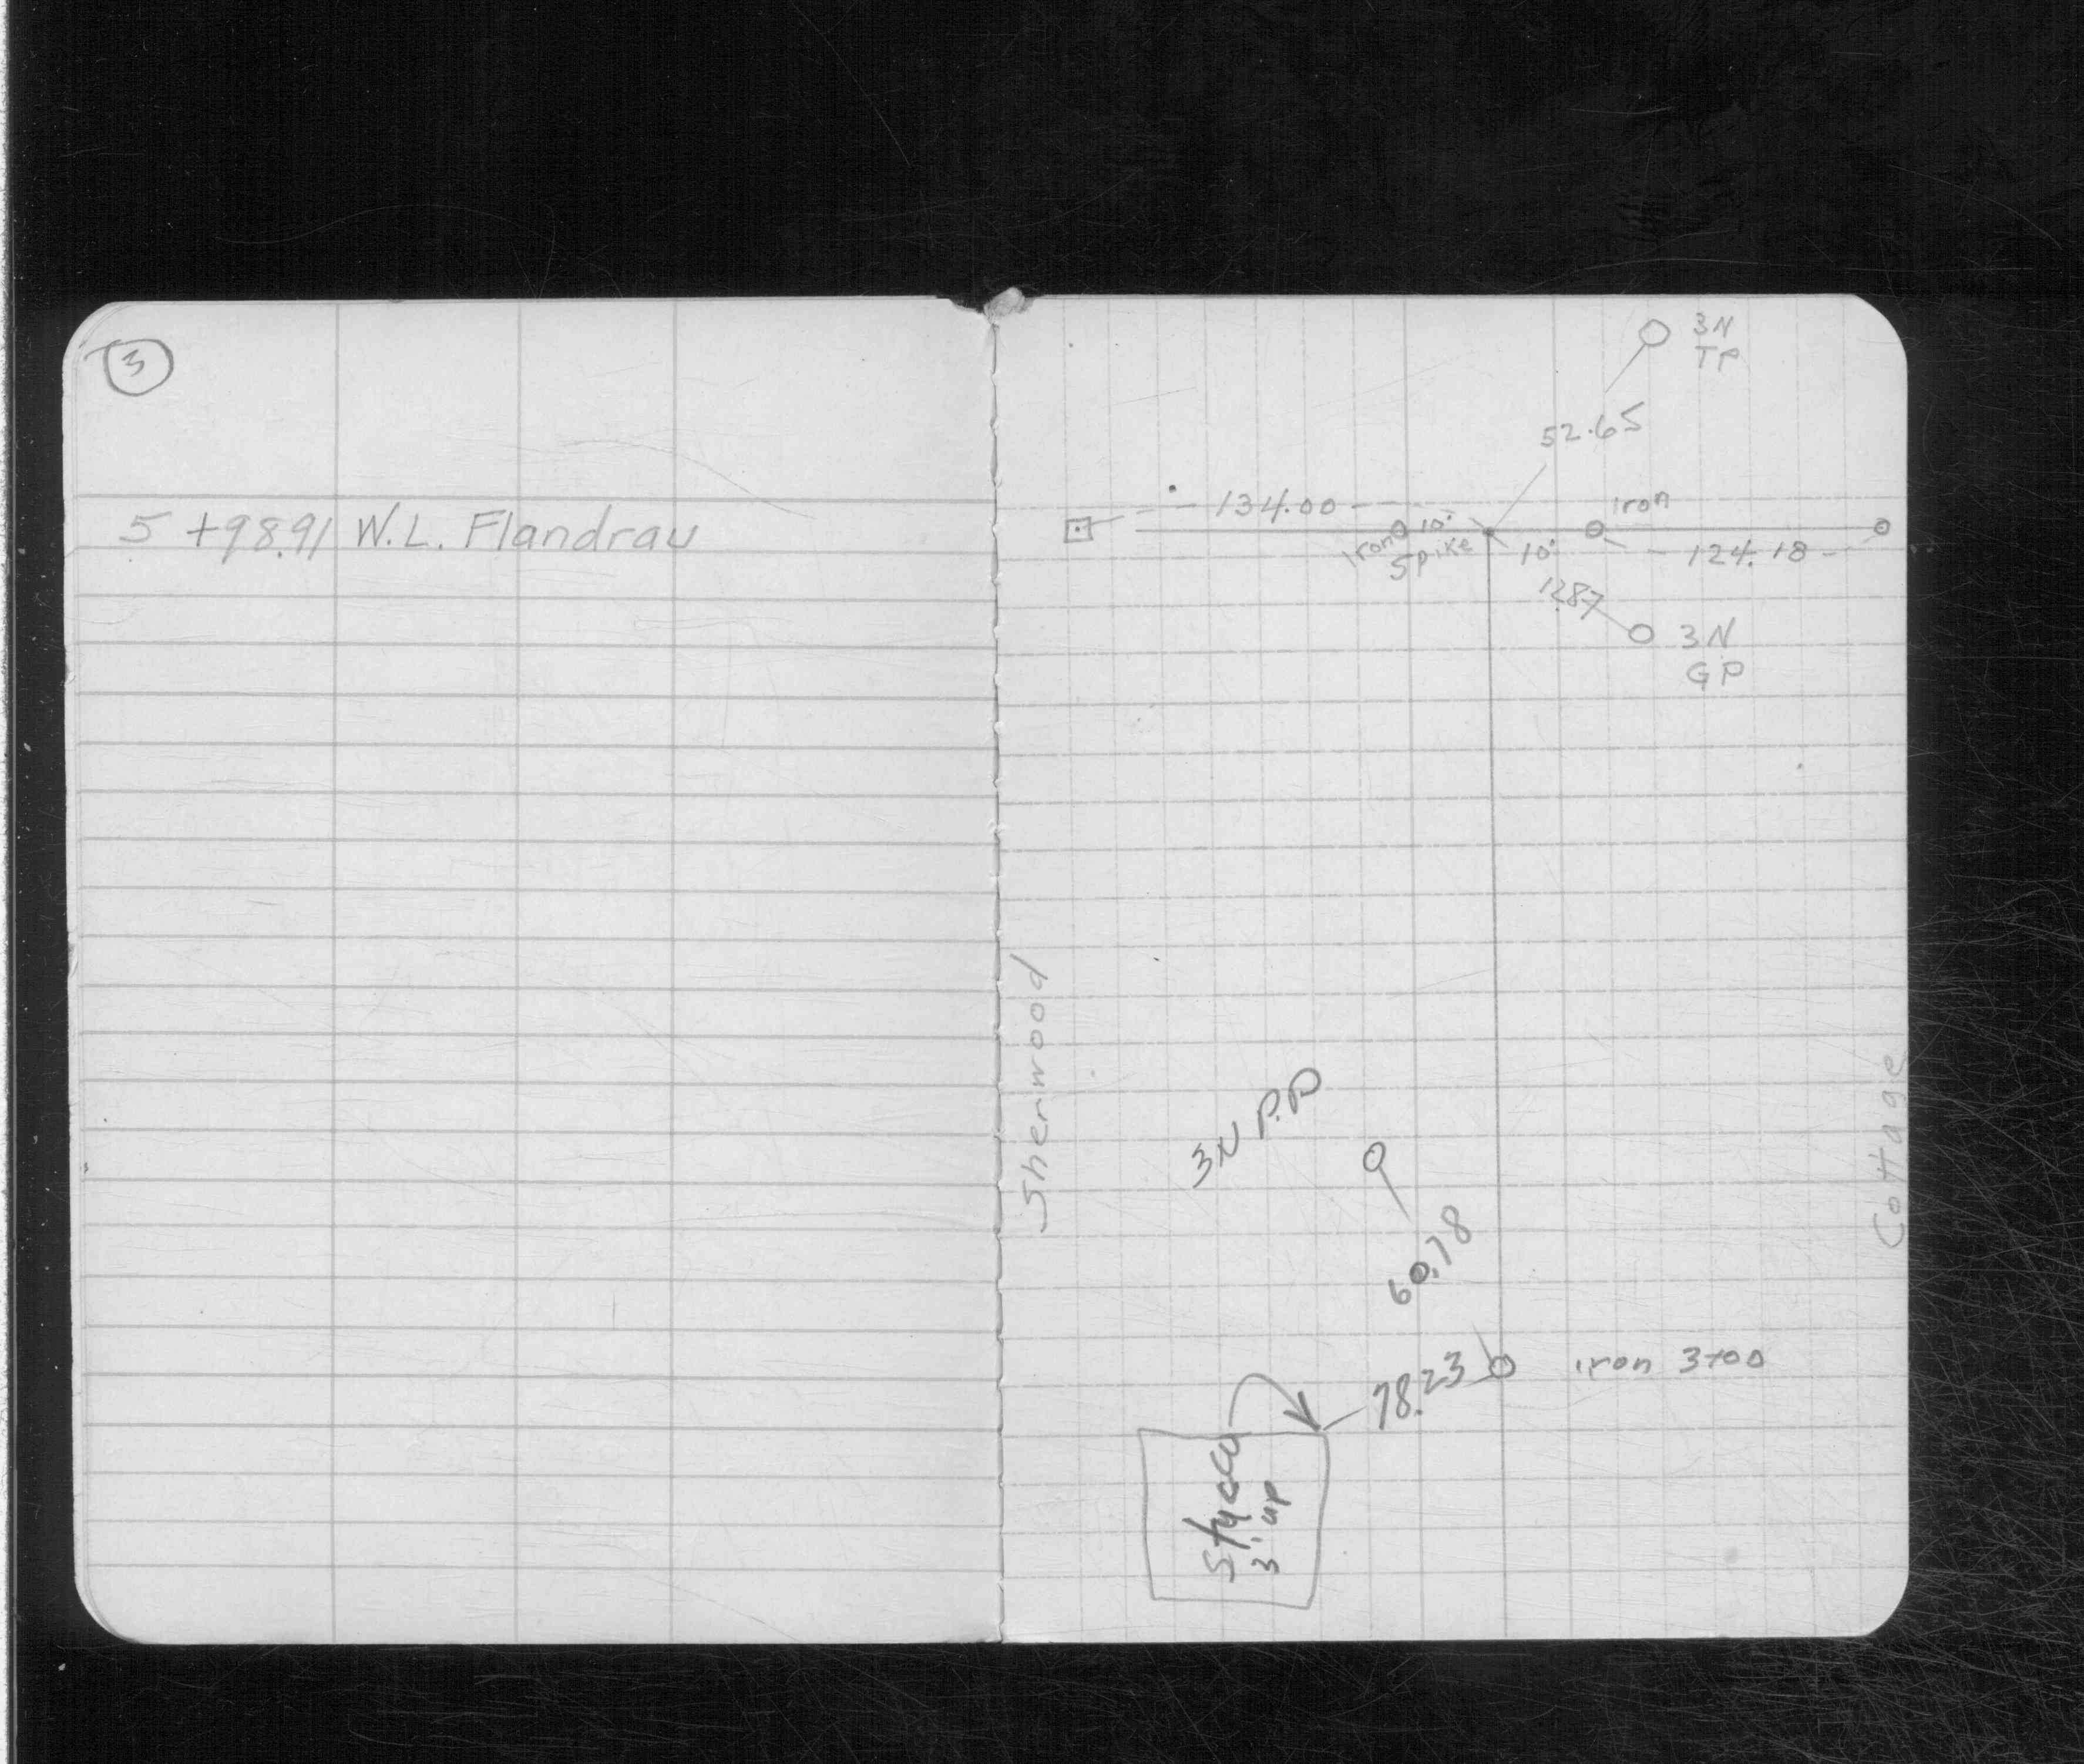 3
5+98.91 W.L. Flandrau
3N
TP
52.65
134.00
10'
Iron
Spike
iron
10'
124.18
12.87
3N
GP
Sherwood
Cottage
3N P.P
60.78
78.23
iron 3+00
Stucco
3' up